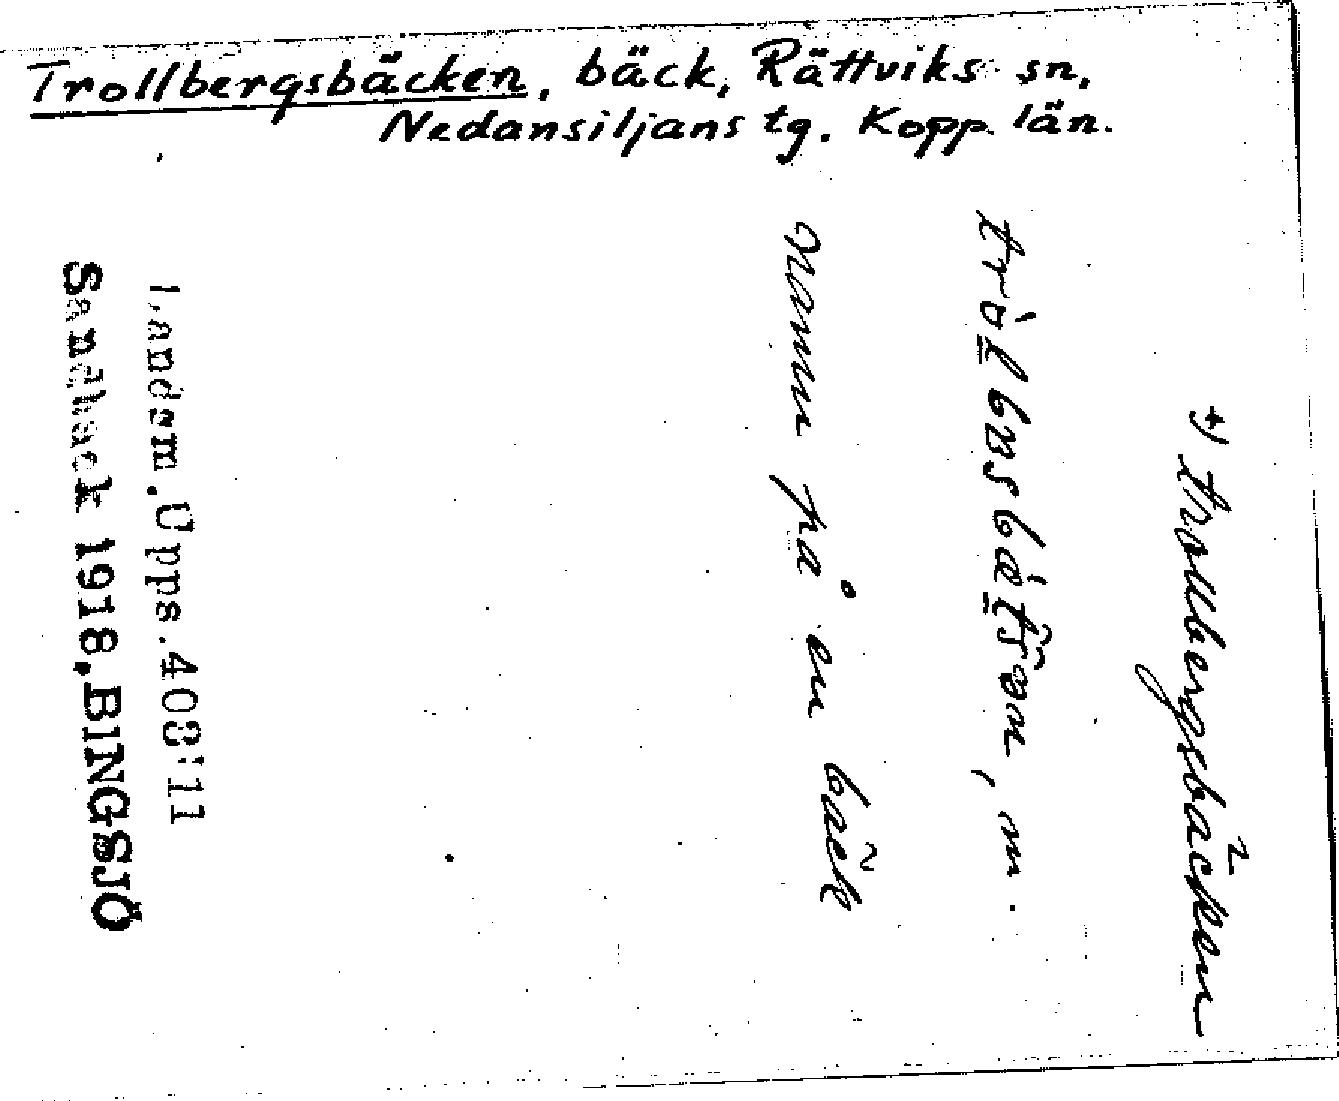 Trollbergsbäcken, bäck, Rättviks sn,
Nedansiljans tg. Kopp. län.
+) trollbergsbäcken
m.
namn på en bäck
Landsm. Upps. 408:11
Sandback 1918. BINGSJÖ